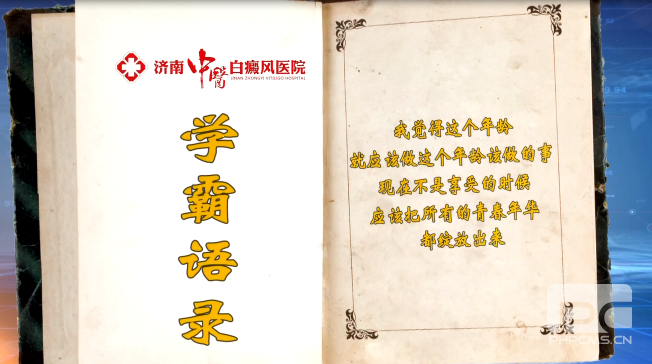 济南中医白癜风医院
JINAN ZHONGYI VITILIGO HOSPITAL
学霸语录
我觉得这个年龄
就应该做这个年龄该做的事
现在不是享受的时候
应该把所有的青春年华
都绽放出来
PHPCMS.CN